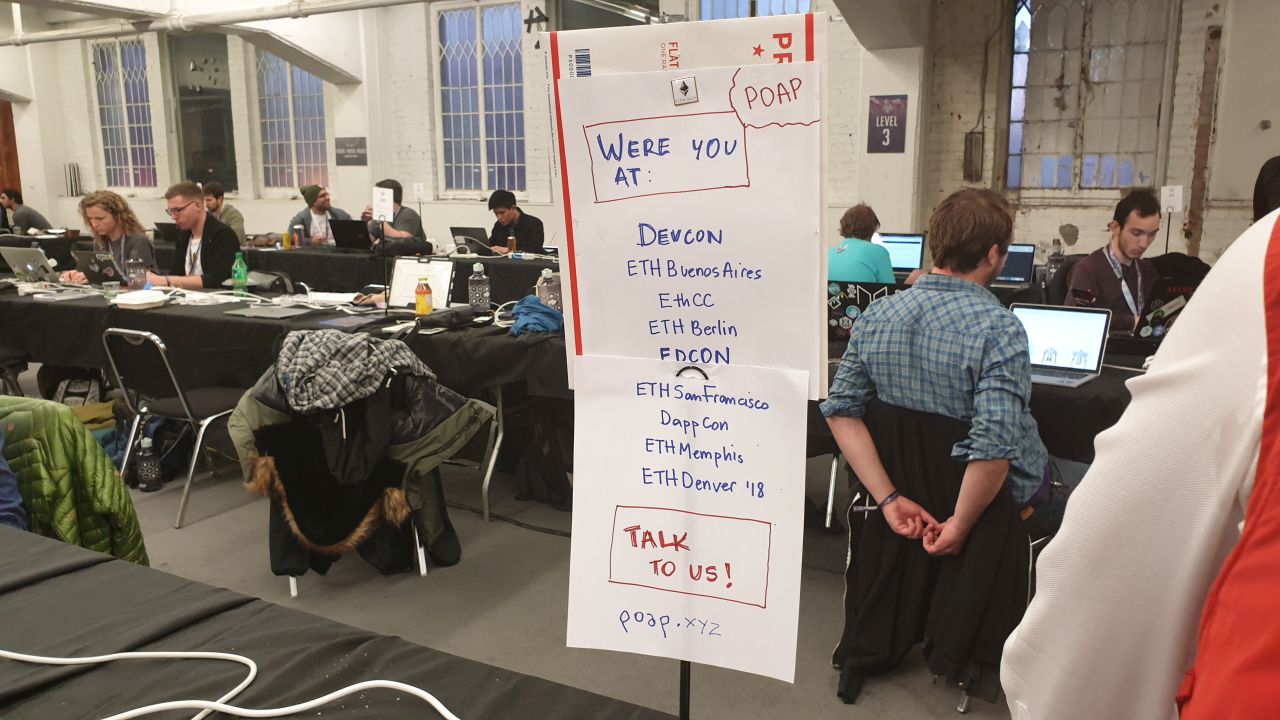 PR
FLAT
POAP
WERE YOU
AT:
DEVCON
ETH Buenos Aires
EthCC
ETH Berlin
EDCON
ETH San Francisco
DappCon
ETH Memphis
ETH Denver '18
TALK
TO US!
poap.xyz
LEVEL
3